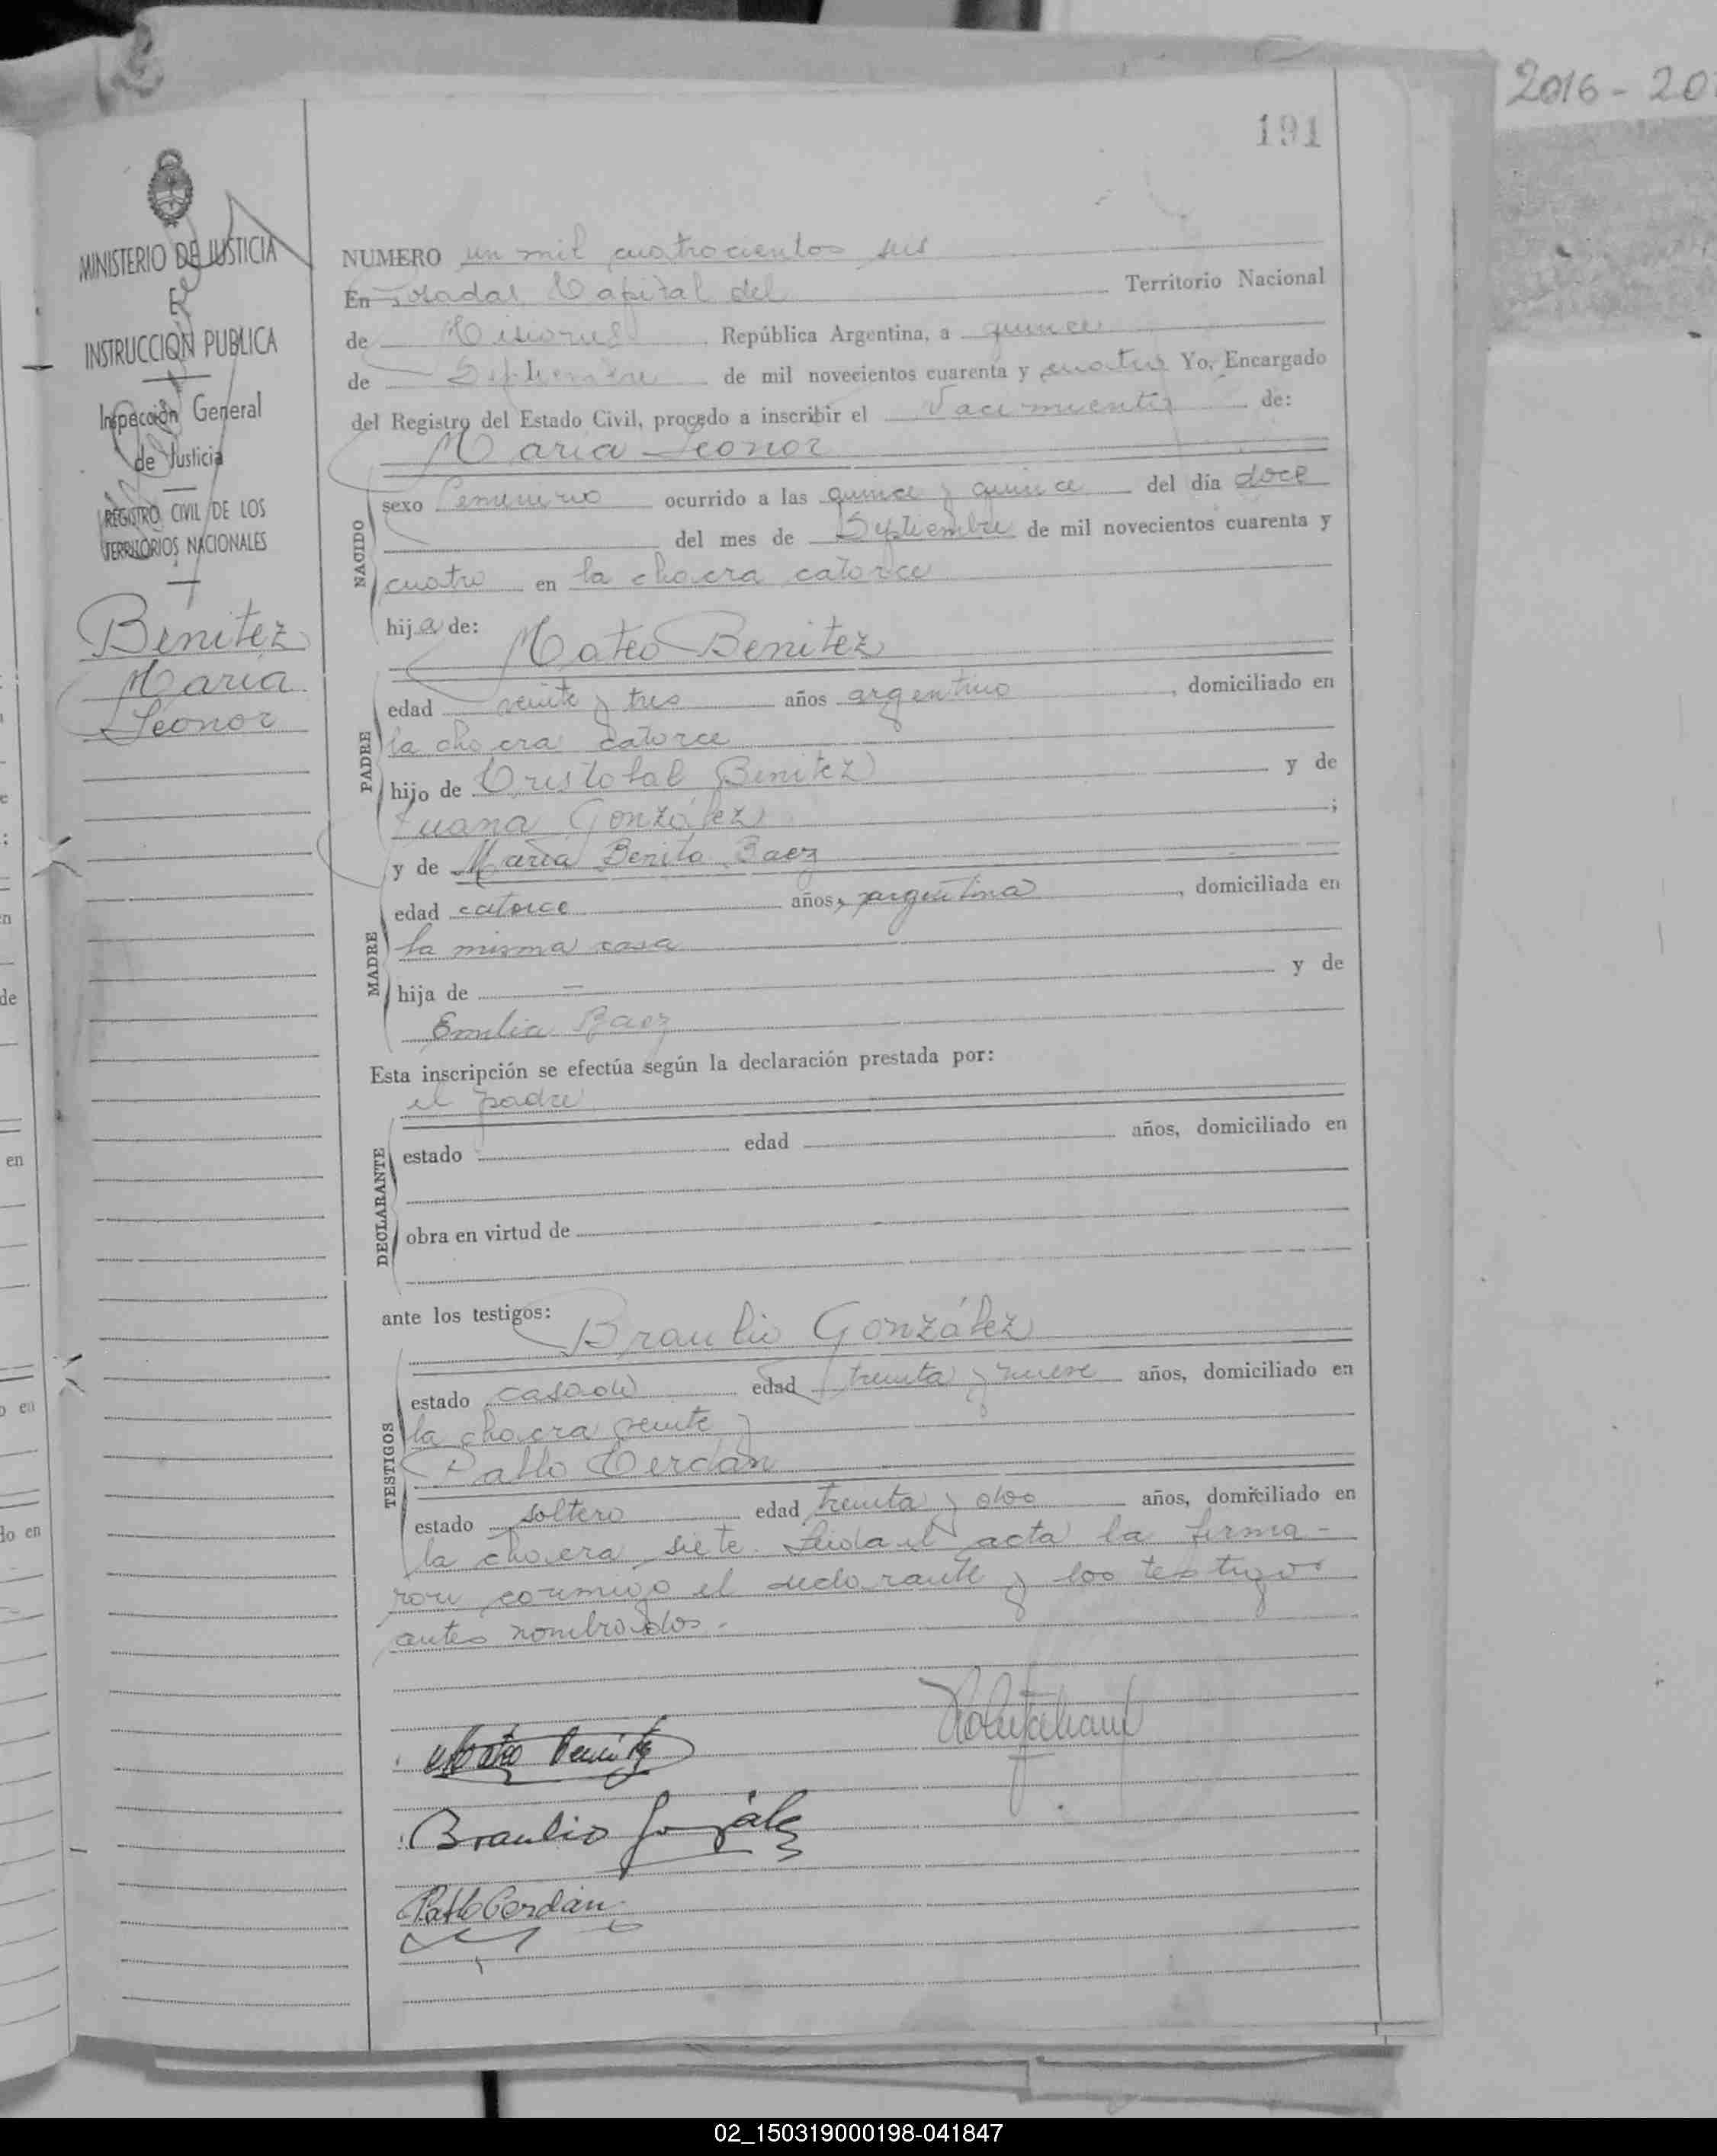 2016-20
191
MINISTERIO DE JUSTICIA
E
INSTRUCCION PUBLICA
Inspección General
de Justicia
REGISTRO CIVIL DE LOS
TERRITORIOS NACIONALES
Benitez
Maria
Leonor
NUMERO un mil cuatrocientos seis
En Posadas Capital del Territorio Nacional
de Misiones República Argentina, a quince
de Septiembre de mil novecientos cuarenta y cuatro Yo, Encargado
del Registro del Estado Civil, procedo a inscribir el Nacimiento de:
Maria Leonor
NACIDO
sexo Femenino ocurrido a las quince y quince del día doce
del mes de Septiembre de mil novecientos cuarenta y
cuatro en la chacra catorce
hija de: Mateo Benitez
PADRE
edad veinte y tres años argentino, domiciliado en
la chacra catorce
hijo de Cristobal Benitez y de
Juana González;
y de Maria Benita Baez
MADRE
edad catorce años, argentina, domiciliada en
la misma casa
hija de — y de
Emilia Baez
Esta inscripción se efectúa según la declaración prestada por:
el padre
DECLARANTE
estado edad años, domiciliado en
obra en virtud de
ante los testigos: Braulio González
TESTIGOS
estado casado edad treinta y nueve años, domiciliado en
la chacra veinte y
Pablo Cerdán
estado soltero edad treinta y dos años, domiciliado en
la chacra siete. Leida el acta la firma-
ron conmigo el declarante y los testigos
antes nombrados.-
Mateo Benitez
Braulio González
Pablo Cerdán
02_150319000198-041847